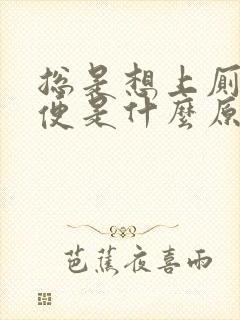 总是想上厕
便是什麼原
芭蕉夜喜雨